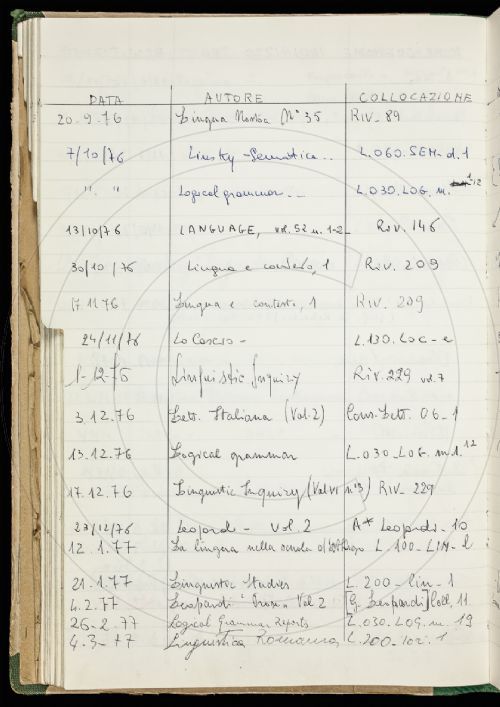 DATA AUTORE COLLOCAZIONE
20.9.76 Lingua Nostra (N° 35 RIV. 89
7/10/76 Linsky-Semantica.. L.060.SEM-d.1
" " Logical grammar... L.030.LOG.m. 1-12
13/10/76 LANGUAGE, vol. 52 n. 1-2 RIV. 146
30/10/76 Lingua e contesto, 1 RIV. 209
17 11 76 Lingua e contesto, 1 RIV. 209
24/11/76 Lo Cascio - L.130.Loc-e
1-12-76 Linguistic Inquiry RIV. 229 vol.7
3.12.76 Lett. Italiana (Vol. 2) Cons. Lett. 06-1
13.12.76 Logical grammar L.030-LOG. m.1. 12
17.12.76 Linguistic Inquiry (Vol VI n°3) RIV-229
27/12/76 Leopardi - Vol. 2 A* Leopardi-10
12.1.77 La lingua nella scuola L.100-LIN-l
21.1.77 Linguistic Studies L.200-lin-1
4.2.77 Leopardi "Prose" Vol 2 [G. Leopardi] Coll. 11
26-2-77 Logical Grammar Reports L.030.LOG.m-19
4-3-77 Linguistica Romanza L.200-